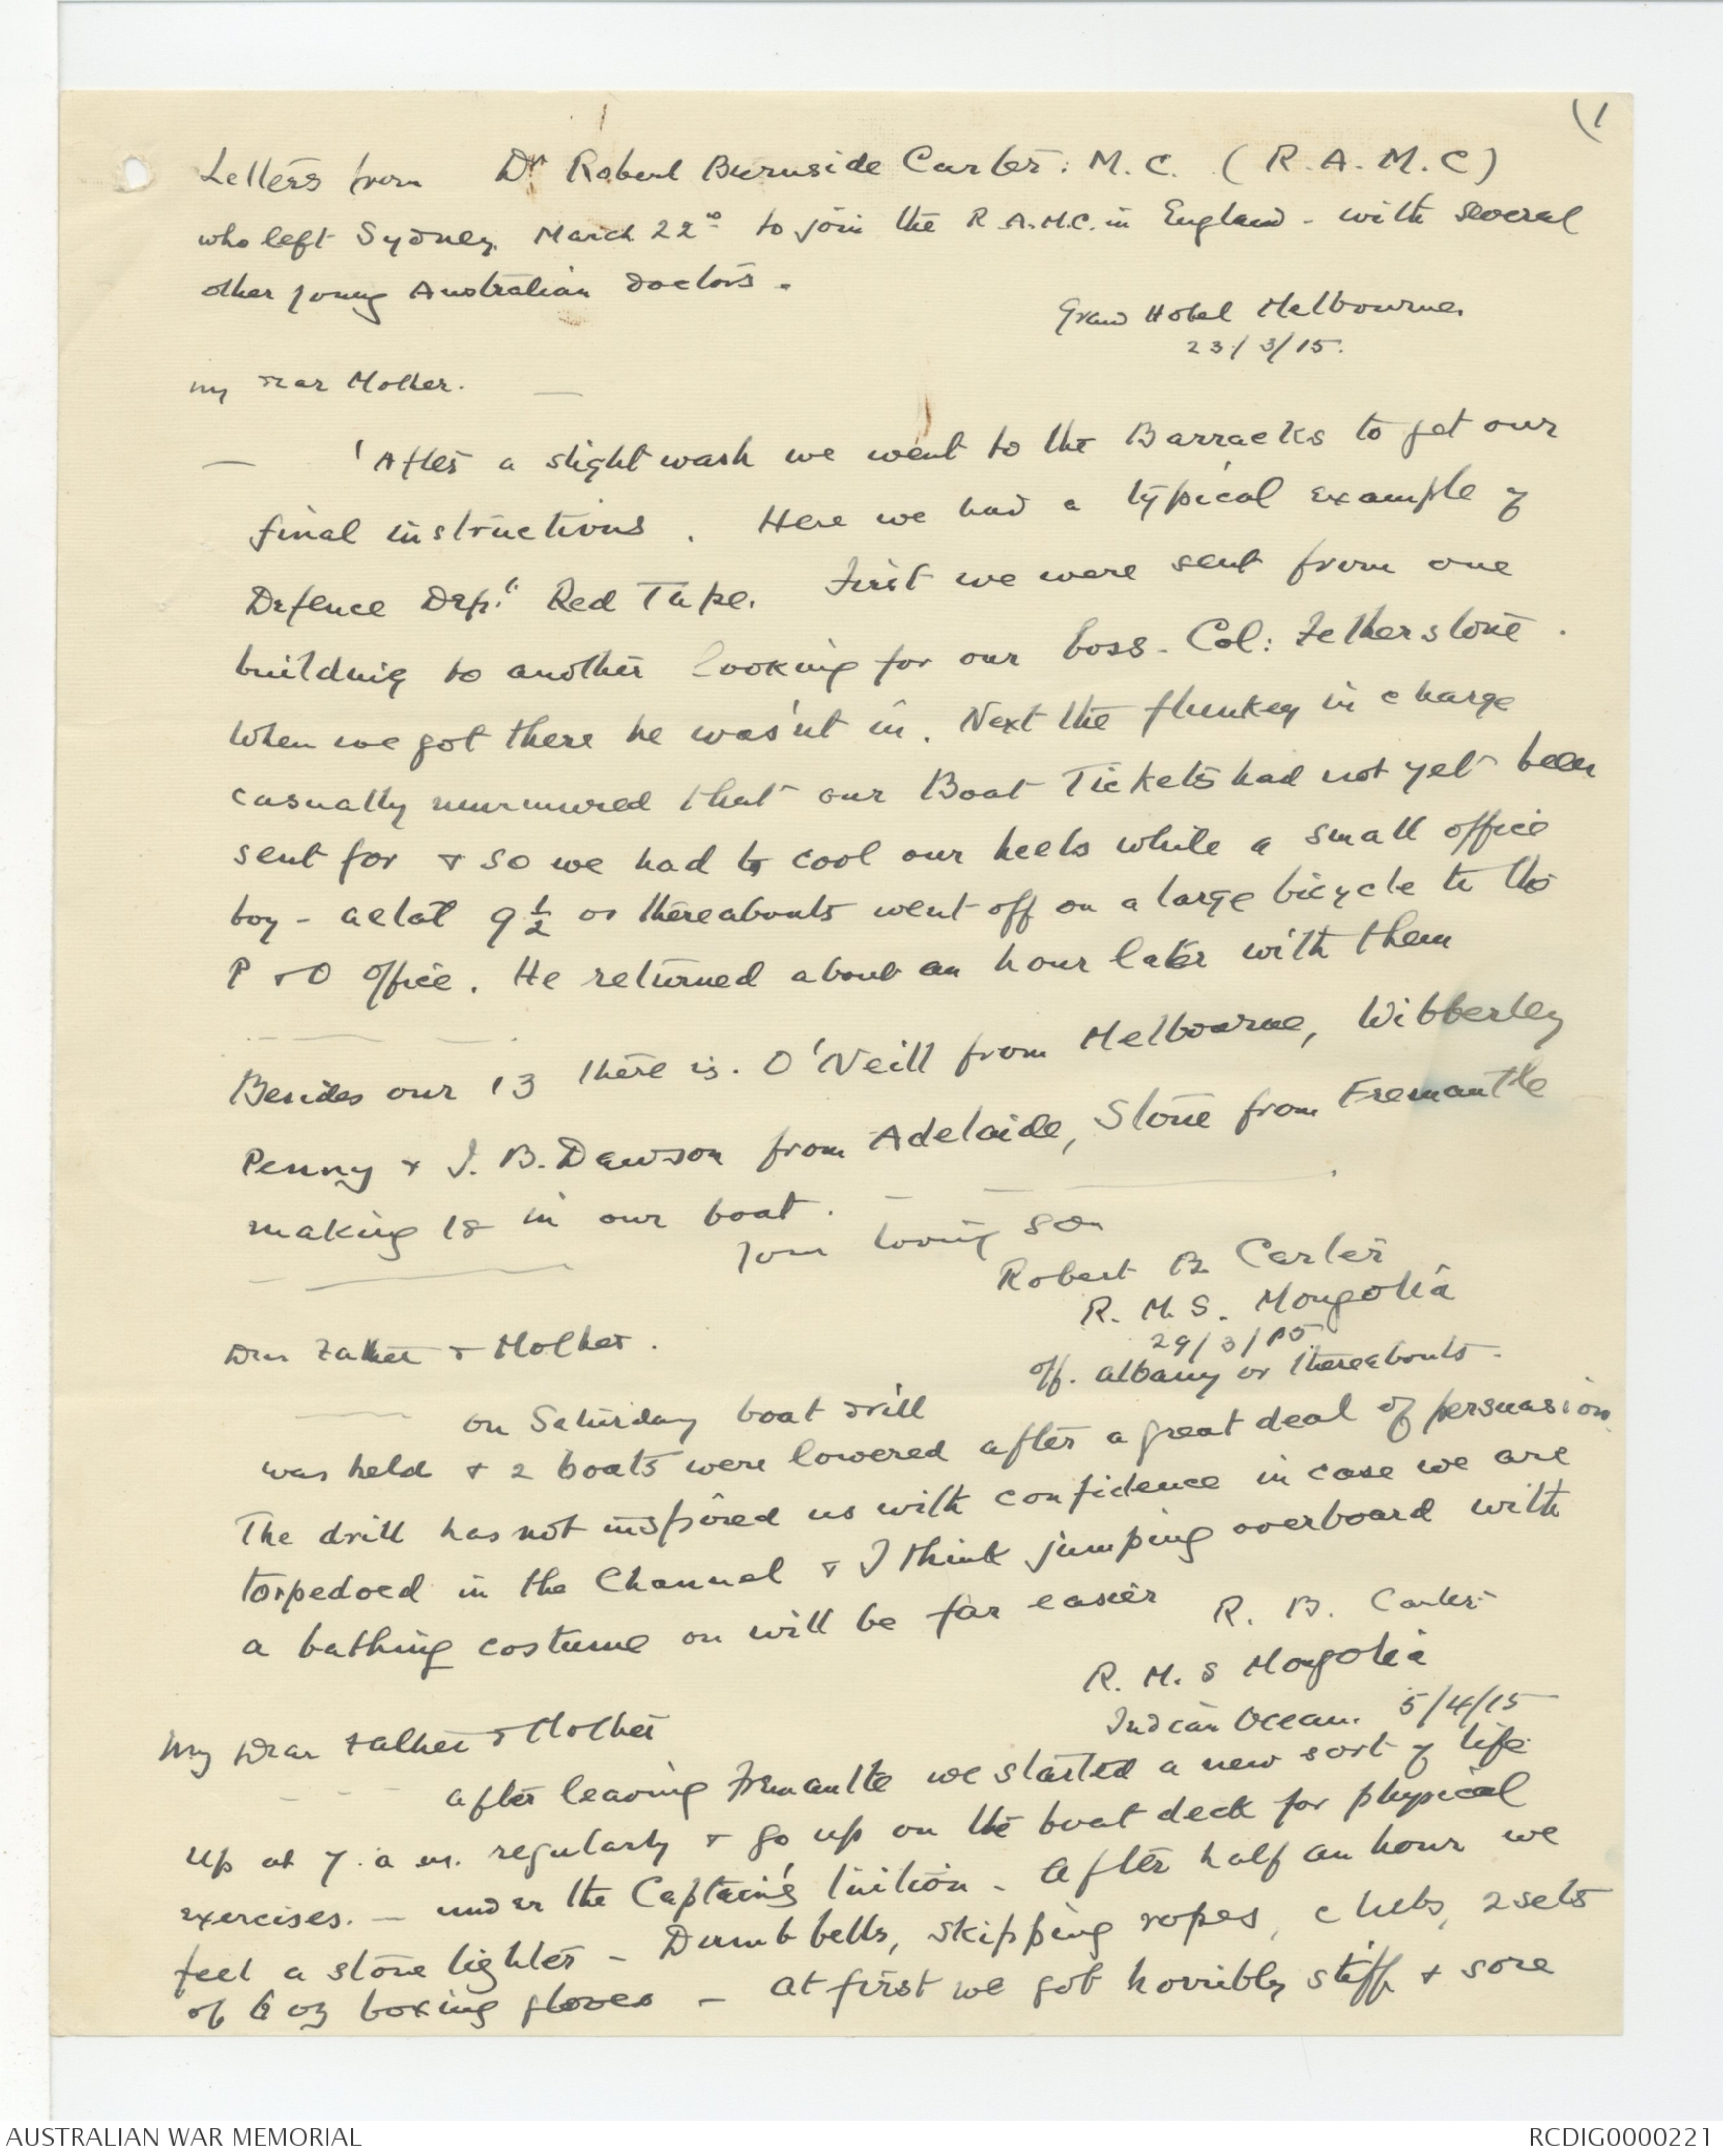 (1
Letters from Dr Robert Burnside Carter: M.C. (R.A.M.C)
who left Sydney, March 22nd to join the R.A.M.C. in England - with several
other young Australian Doctors.
Grand Hotel Melbourne.
23/3/15.
My dear Mother. —
— 'After a slight wash we went to the Barracks to get our
final instructions. Here we had a typical example of
Defence Dept. Red Tape. First we were sent from one
building to another looking for our boss - Col: Fetherstone.
When we got there he was'nt in. Next the flunkey in charge
casually murmured that our Boat Tickets had not yet been
sent for & so we had to cool our heels while a small office
boy - aetat 9½ or thereabouts went off on a large bicycle to the
P & O office. He returned about an hour later with them
Besides our 13 there is. O'Neill from Melbourne, Wibberley
Penny & J. B. Dawson from Adelaide, Stone from Fremantle
making 18 in our boat.
Your loving son
Robert B Carter
R. M. S. Mongolia
29/3/15
off. Albany or thereabouts -
Dear Father & Mother.
— on Saturday boat drill
was held & 2 boats were lowered after a great deal of persuasion
The drill has not inspired us with confidence in case we are
torpedoed in the Channel & I think jumping overboard with
a bathing costume on will be far easier
R. B. Carter
R. M. S Mongolia
Indian Ocean. 5/4/15
My Dear Father & Mother
- - - after leaving Fremantle we started a new sort of life
up at 7. a m. regularly & go up on the boat deck for physical
exercises. - under the Captain's tuition - After half an hour we
feel a stone lighter - Dumb bells, skipping ropes, clubs, 2 sets
of 6 oz boxing gloves - At first we got horribly stiff & sore
AUSTRALIAN WAR MEMORIAL
RCDIG0000221